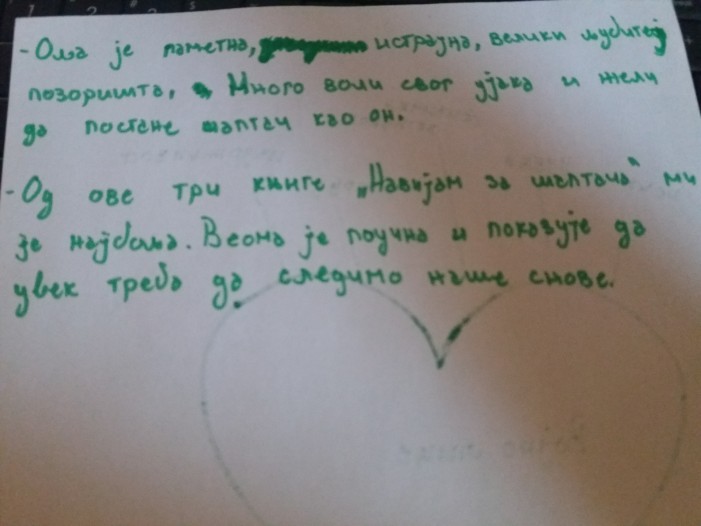 - Оља је паметна, истрајна, велики љубитељ
позоришта. Много воли свог ујака и жели
да постане шаптач као он.
- Од ове три књиге „Навијам за шаптача" ми
је најбоља. Веома је поучна и показује да
увек треба да следимо наше снове.